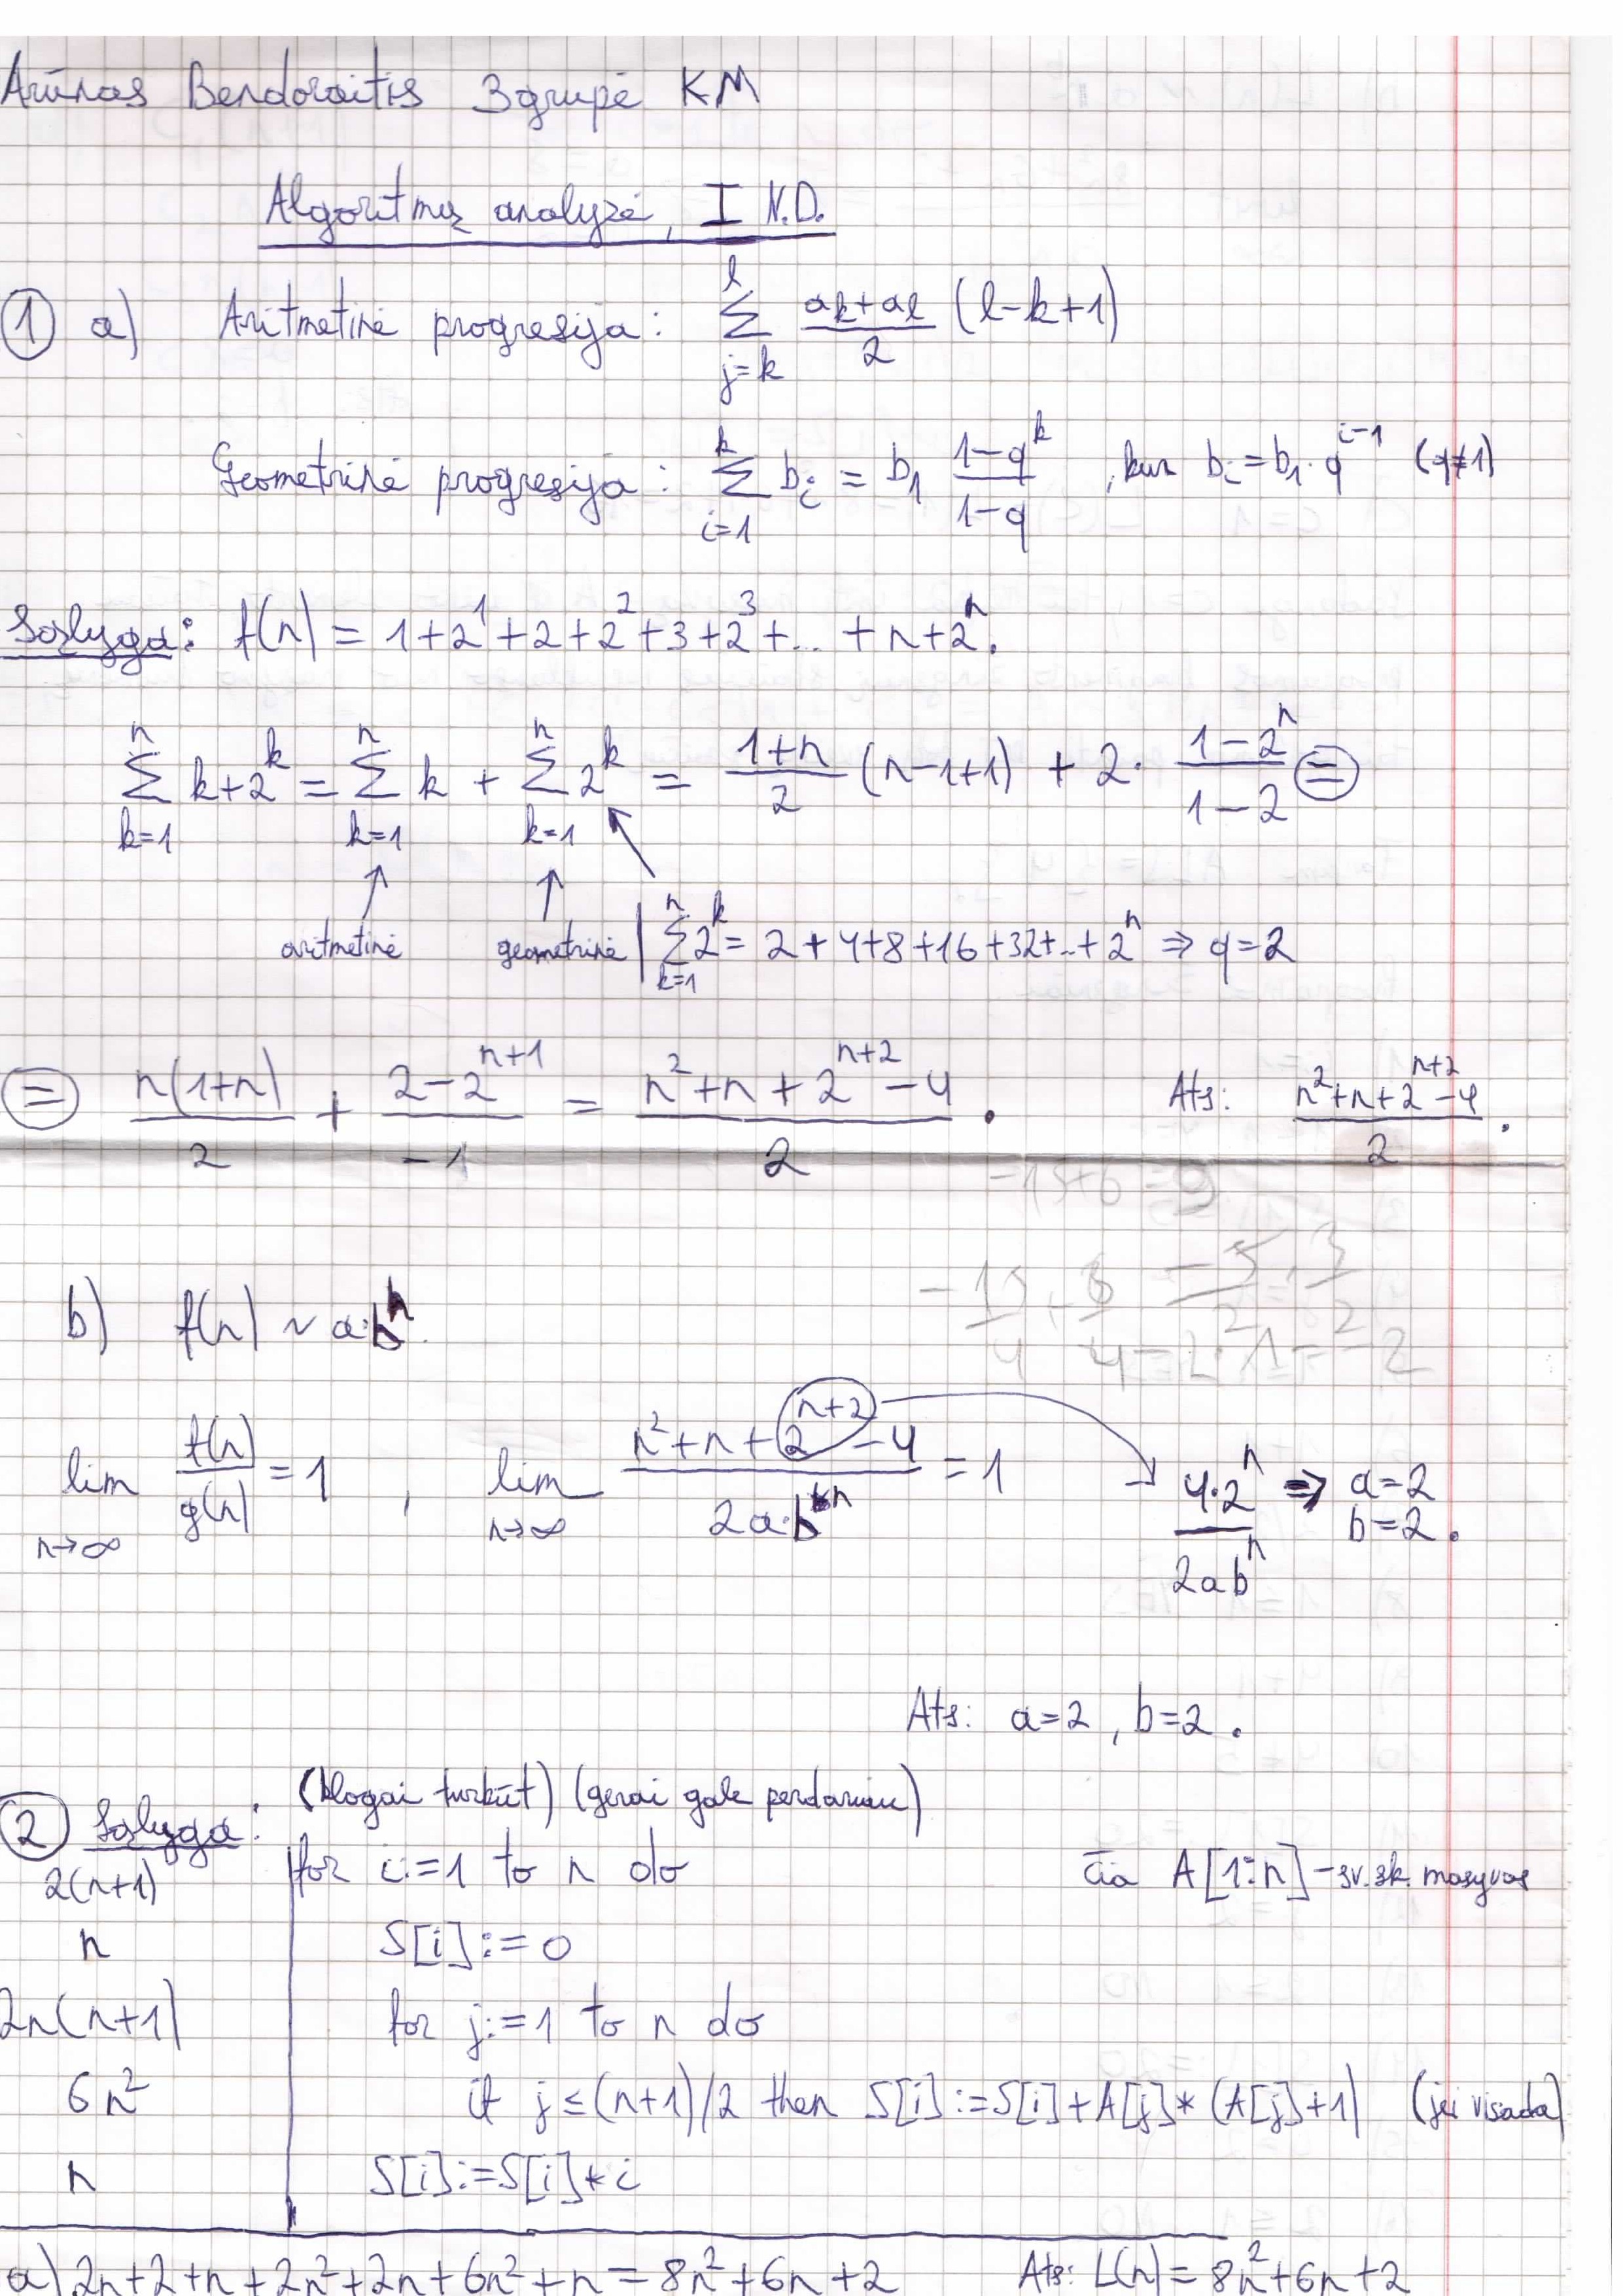 Arūnas Bendoraitis 3grupė KM
Algoritmų analyzė, I N.D.
① a) Aritmetinė progresija: \sum_{j=k}^{l} \frac{a_k+a_l}{2} (l-k+1)
Geometrinė progresija: \sum_{i=1}^{k} b_i = b_1 \frac{1-q^k}{1-q}, kur b_i = b_1 \cdot q^{i-1} (q≠1)
Sąlyga: f(n) = 1+2^1+2+2^2+3+2^3+... +n+2^n.
\sum_{k=1}^{n} k+2^k = \sum_{k=1}^{n} k + \sum_{k=1}^{n} 2^k = \frac{1+n}{2} (n-1+1) + 2 \cdot \frac{1-2^n}{1-2} ⊜
aritmetinė geometrinė | \sum_{k=1}^{n} 2^k = 2+4+8+16+32+..+2^n ⇒ q=2
⊜ \frac{n(1+n)}{2} + \frac{2-2^{n+1}}{-1} = \frac{n^2+n+2^{n+2}-4}{2}. Ats: \frac{n^2+n+2^{n+2}-4}{2}.
b) f(n) ~ a·b^n.
\lim_{n→∞} \frac{f(n)}{g(n)} = 1, \lim_{n→∞} \frac{n^2+n+2^{n+2}-4}{2a·b^n} = 1 → \frac{4·2^n}{2ab^n} ⇒ a=2 b=2.
Ats: a=2, b=2.
② Sąlyga: (blogai turbūt) (gerai gale perdariau)
2(n+1) | for i:=1 to n do čia A[1:n] - sv.sk. masyvas
n | S[i]:=0
2n(n+1) | for j:=1 to n do
6n^2 | if j ≤ (n+1)/2 then S[i]:=S[i]+A[j]*(A[j]+1) (jei visada)
n | S[i]:=S[i]*i
a) 2n+2+n+2n^2+2n+6n^2+n = 8n^2+6n+2 Ats: L(n) = 8n^2+6n+2